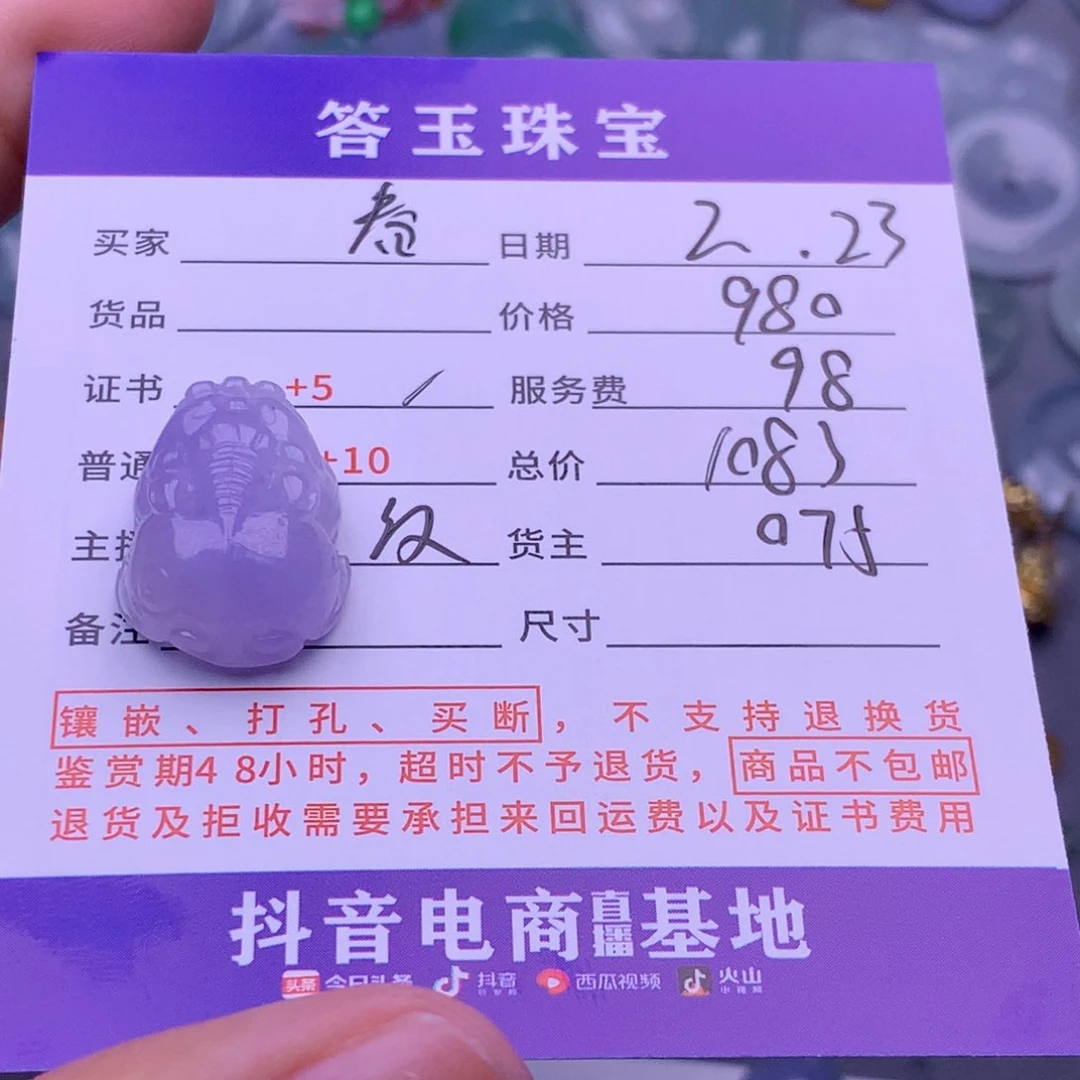 答玉珠宝
买家 春 日期 2.23
货品 价格 980
证书 +5 / 服务费 98
普通 +10 总价 1083
主 货主 07
备注 尺寸
镶嵌、打孔、买断，不支持退换货
鉴赏期48小时，超时不予退货，商品不包邮
退货及拒收需要承担来回运费以及证书费用
抖音电商直播基地
头条 今日头条 抖音 西瓜视频 火山小视频